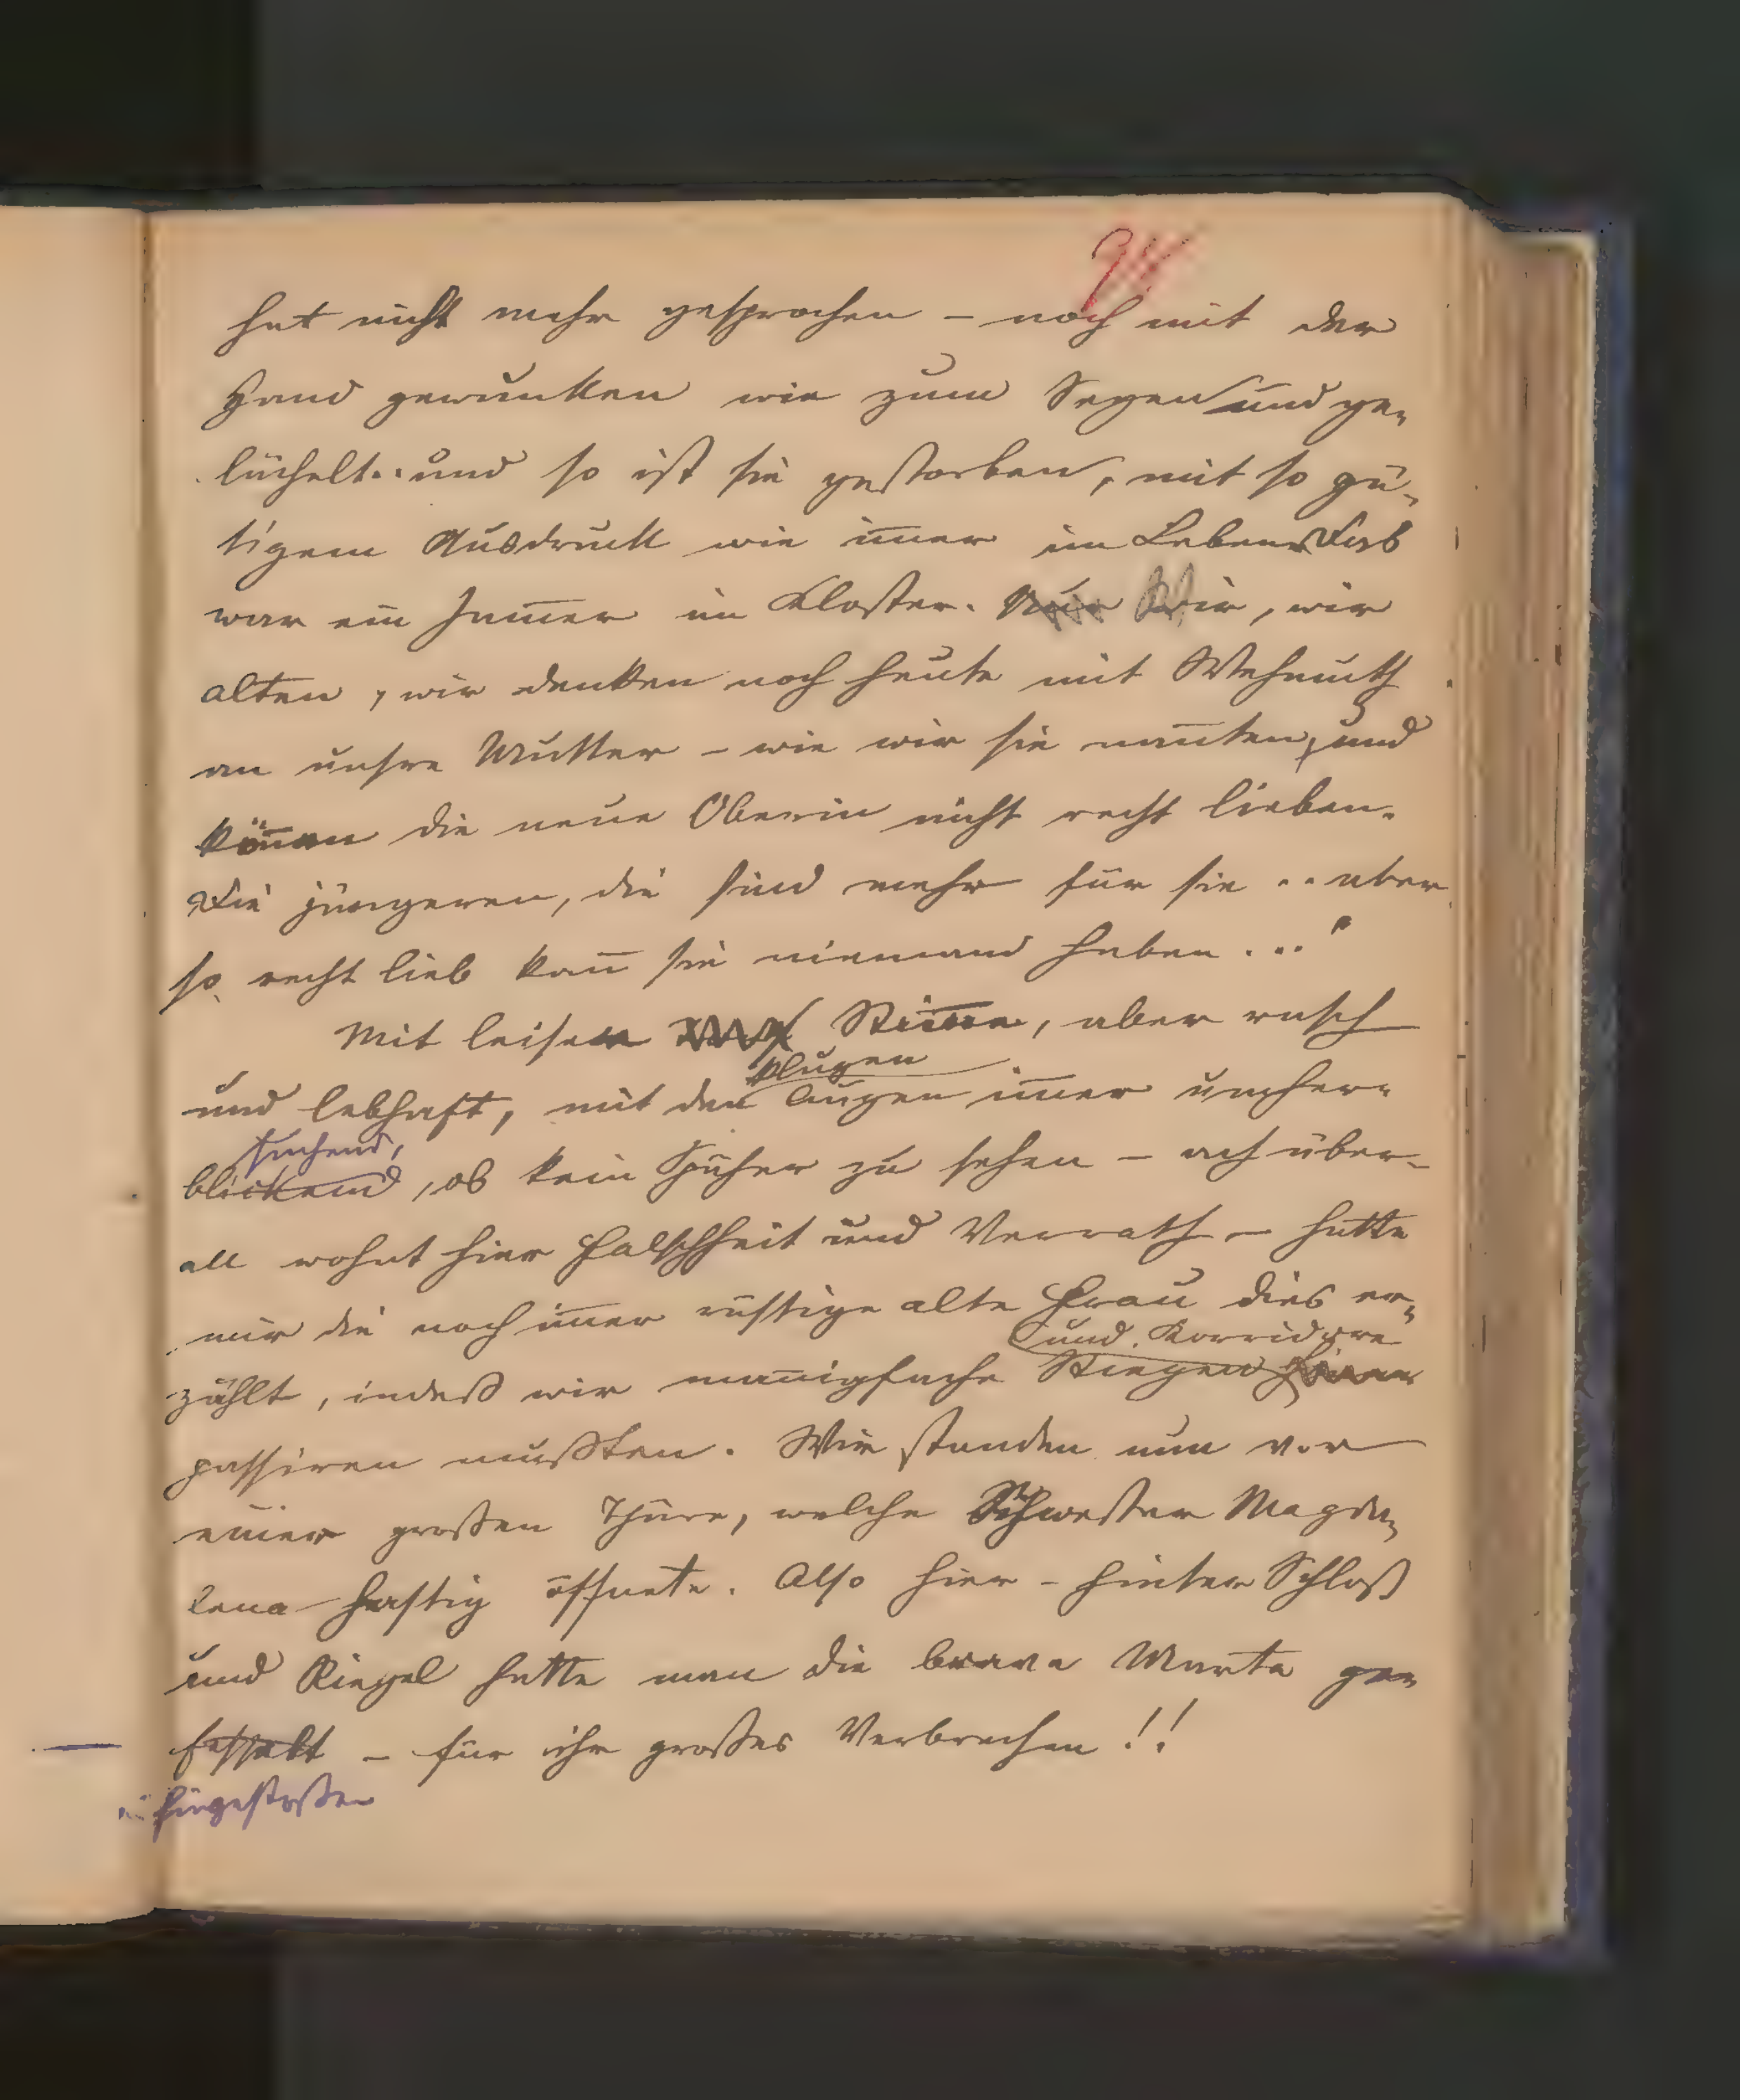 94
hat nicht mehr gesprochen – noch mit der
Hand gewunken wie zum Segen und ge-
lächelt.. und so ist sie gestorben, mit so gü-
tigem Ausdruck wie im̄er im Leben. Das
war ein Jam̄er im Kloster. Wir, wir
alten, wir denken noch heute mit Wehmuth
an unsre Mutter – wie wir sie nan̄ten, und
kön̄en die neue Oberin nicht recht lieben.
Die jüngeren, die sind mehr für sie .. aber
so recht lieb kan̄ sie niemand haben ..."
Mit leiser Stim̄e, aber rasch
klugen
und lebhaft, mit den Augen im̄er umher-
suchend,
blickend, ob kein Späher zu sehen – ach über-
all wohnt hier Falschheit und Verrath – hatte
mir die noch im̄er rüstige alte Frau dies er-
und Korridore
zählt, indeß wir man̄igfache Stiegen
passiren mußten. Wir standen nun vor
einer großen Thüre, welche Schwester Magda-
lena hastig öffnete. Also hier – hinter Schloß
und Riegel hatte man die brave Marta ge-
fesselt – für ihr großes Verbrechen!!
hingestoßen